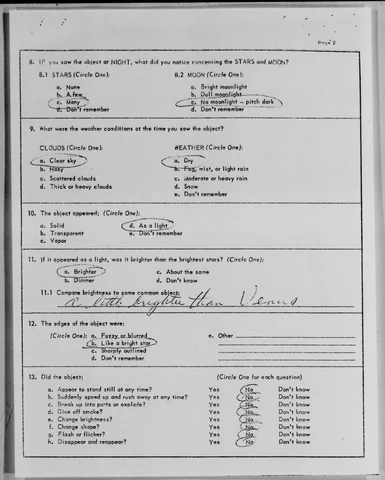 Page 2
8. IF you saw the object at NIGHT, what did you notice concerning the STARS and MOON?
8.1 STARS (Circle One): 8.2 MOON (Circle One):
a. None a. Bright moonlight
b. A few b. Dull moonlight
c. Many c. No moonlight — pitch dark
d. Don't remember d. Don't remember
9. What were the weather conditions at the time you saw the object?
CLOUDS (Circle One): WEATHER (Circle One):
a. Clear sky a. Dry
b. Hazy b. Fog, mist, or light rain
c. Scattered clouds c. Moderate or heavy rain
d. Thick or heavy clouds d. Snow
e. Don't remember
10. The object appeared: (Circle One):
a. Solid d. As a light
b. Transparent e. Don't remember
c. Vapor
11. If it appeared as a light, was it brighter than the brightest stars? (Circle One):
a. Brighter c. About the same
b. Dimmer d. Don't know
11.1 Compare brightness to some common object:
A little brighter than Venus
12. The edges of the object were:
(Circle One): a. Fuzzy or blurred e. Other
b. Like a bright star
c. Sharply outlined
d. Don't remember
13. Did the object: (Circle One for each question)
a. Appear to stand still at any time? Yes No Don't know
b. Suddenly speed up and rush away at any time? Yes No Don't know
c. Break up into parts or explode? Yes No Don't know
d. Give off smoke? Yes No Don't know
e. Change brightness? Yes No Don't know
f. Change shape? Yes No Don't know
g. Flash or flicker? Yes No Don't know
h. Disappear and reappear? Yes No Don't know